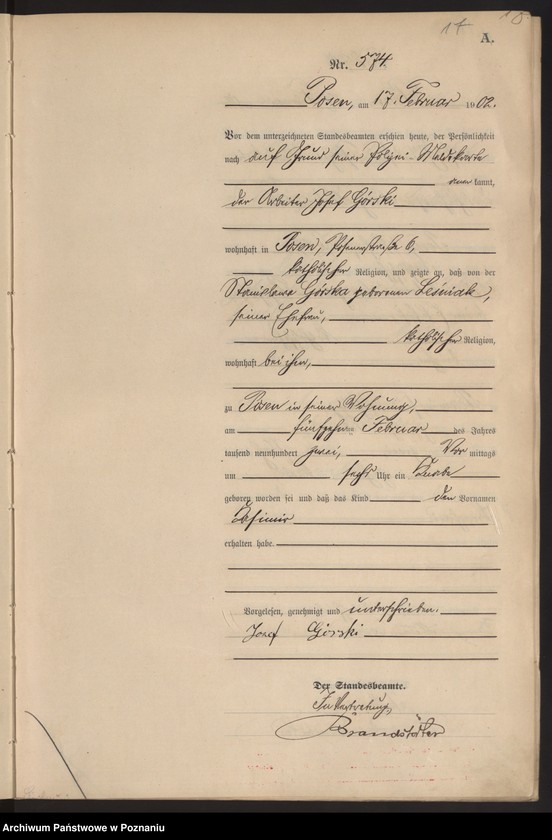 17
10
A.
Nr. 574.
Posen, am 17. Februar 1902.
Vor dem unterzeichneten Standesbeamten erschien heute, der Persönlichkeit
nach auf Grund seiner Polizei-Meldekarte
anerkannt,
der Arbeiter Josef Górski
wohnhaft in Posen, Posenerstraße 6,
katholischer Religion, und zeigte an, daß von der
Stanislawa Górska geborenen Leśniak,
seiner Ehefrau,
katholischer Religion,
wohnhaft bei ihm,
zu Posen in seiner Wohnung,
am fünfzehnten Februar des Jahres
tausend neunhundert zwei, Vor mittags
um sechs Uhr ein Knabe
geboren worden sei und daß das Kind den Vornamen
Kasimir
erhalten habe.
Vorgelesen, genehmigt und unterschrieben.
Josef Górski
Der Standesbeamte.
In Vertretung,
Brandstäter
Archiwum Państwowe w Poznaniu